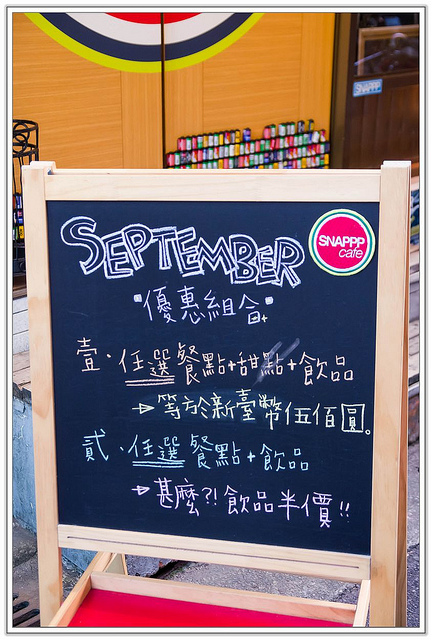 SNAPPP
SEPTEMBER
SNAPPP
cafe
"優惠組合"
壹·任選餐點+甜點+飲品
→等於新臺幣伍佰圓。
貳·任選餐點+飲品
→甚麼?!飲品半價!!